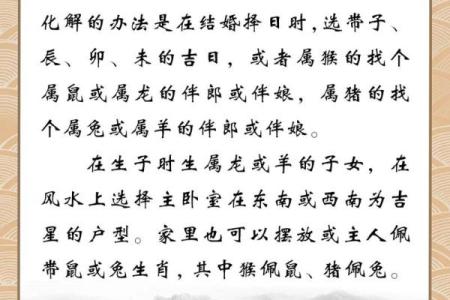 化解的办法是在结婚择日时,选带子、
辰、卯、未的吉日，或者属猴的找个
属鼠或属龙的伴郎或伴娘，属猪的找
个属兔或属羊的伴郎或伴娘。
在生子时生属龙或羊的子女，在
风水上选择主卧室在东南或西南为吉
星的户型。家里也可以摆放或主人佩
带鼠或兔生肖,其中猴佩鼠、猪佩兔。